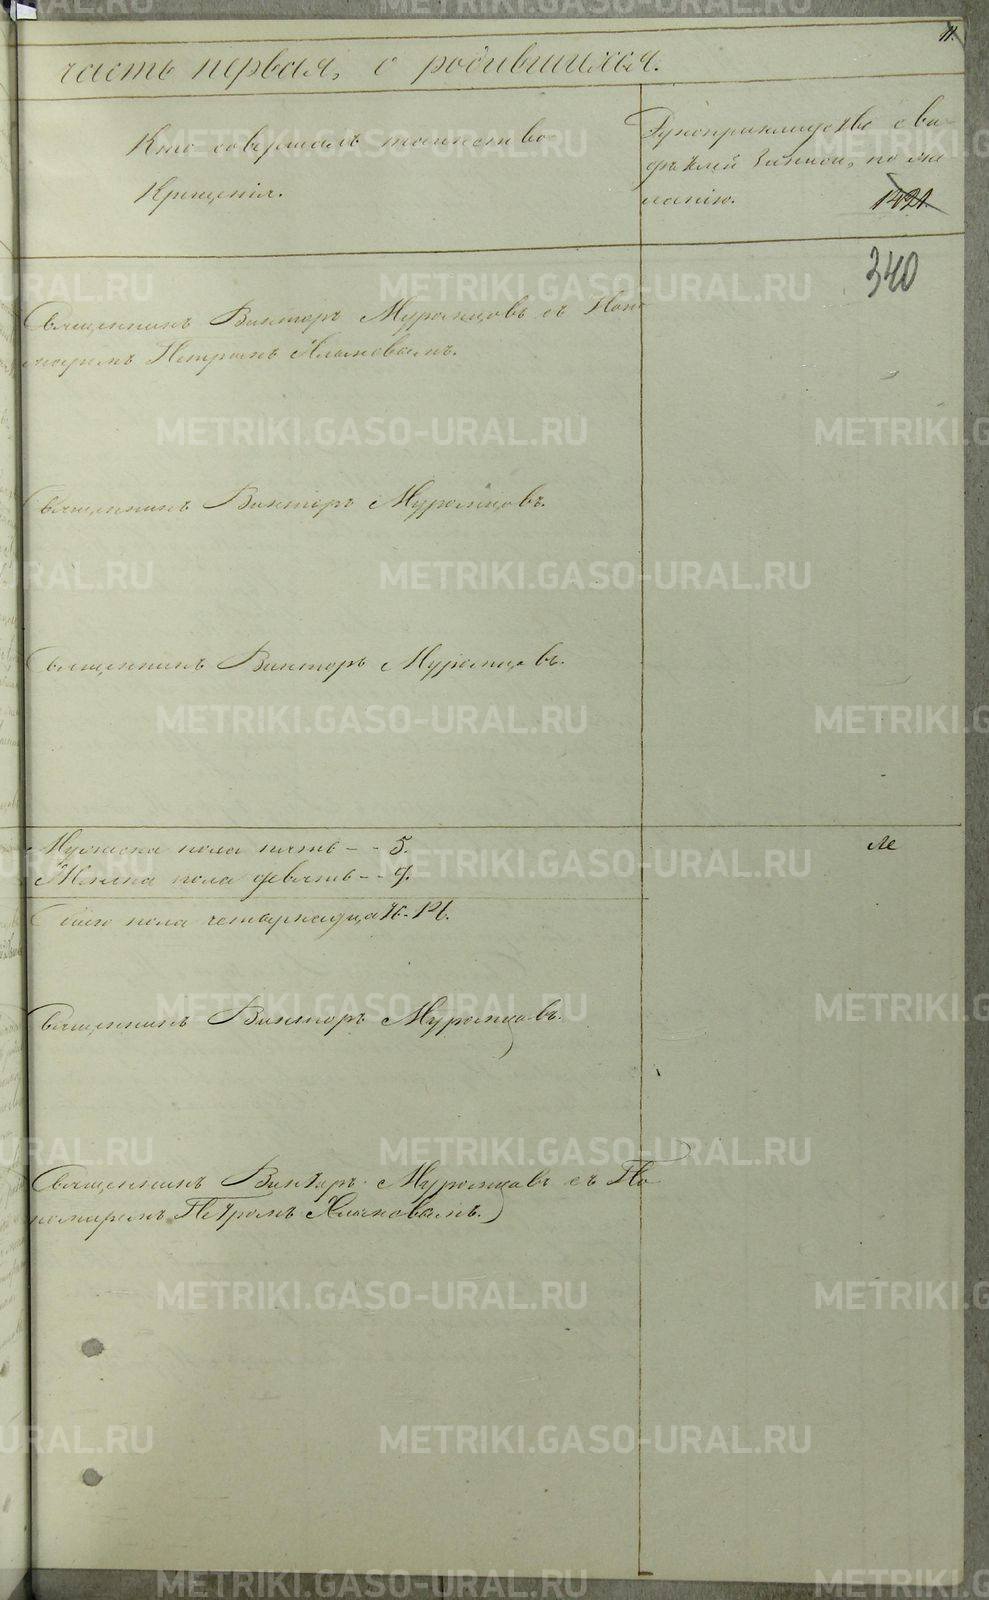 11.
часть первая, о родившихся.
Кто совершалъ таинство
Крещенія.
Рукоприкладство сви-
дѣтелей записи, по же-
ланію.
1421
340
Священникъ Викторъ Муромцовъ съ Поно-
маремъ Петромъ
Священникъ Викторъ Муромцовъ.
Священникъ Викторъ Муромцовъ.
Мужеска пола пять - - 5.
Женска пола девять - - 9.
Обоего пола четырнадцать. 14.
Священникъ Викторъ Муромцовъ.
Священникъ Викторъ Муромцовъ съ По-
номаремъ Петромъ
METRIKI.GASO-URAL.RU